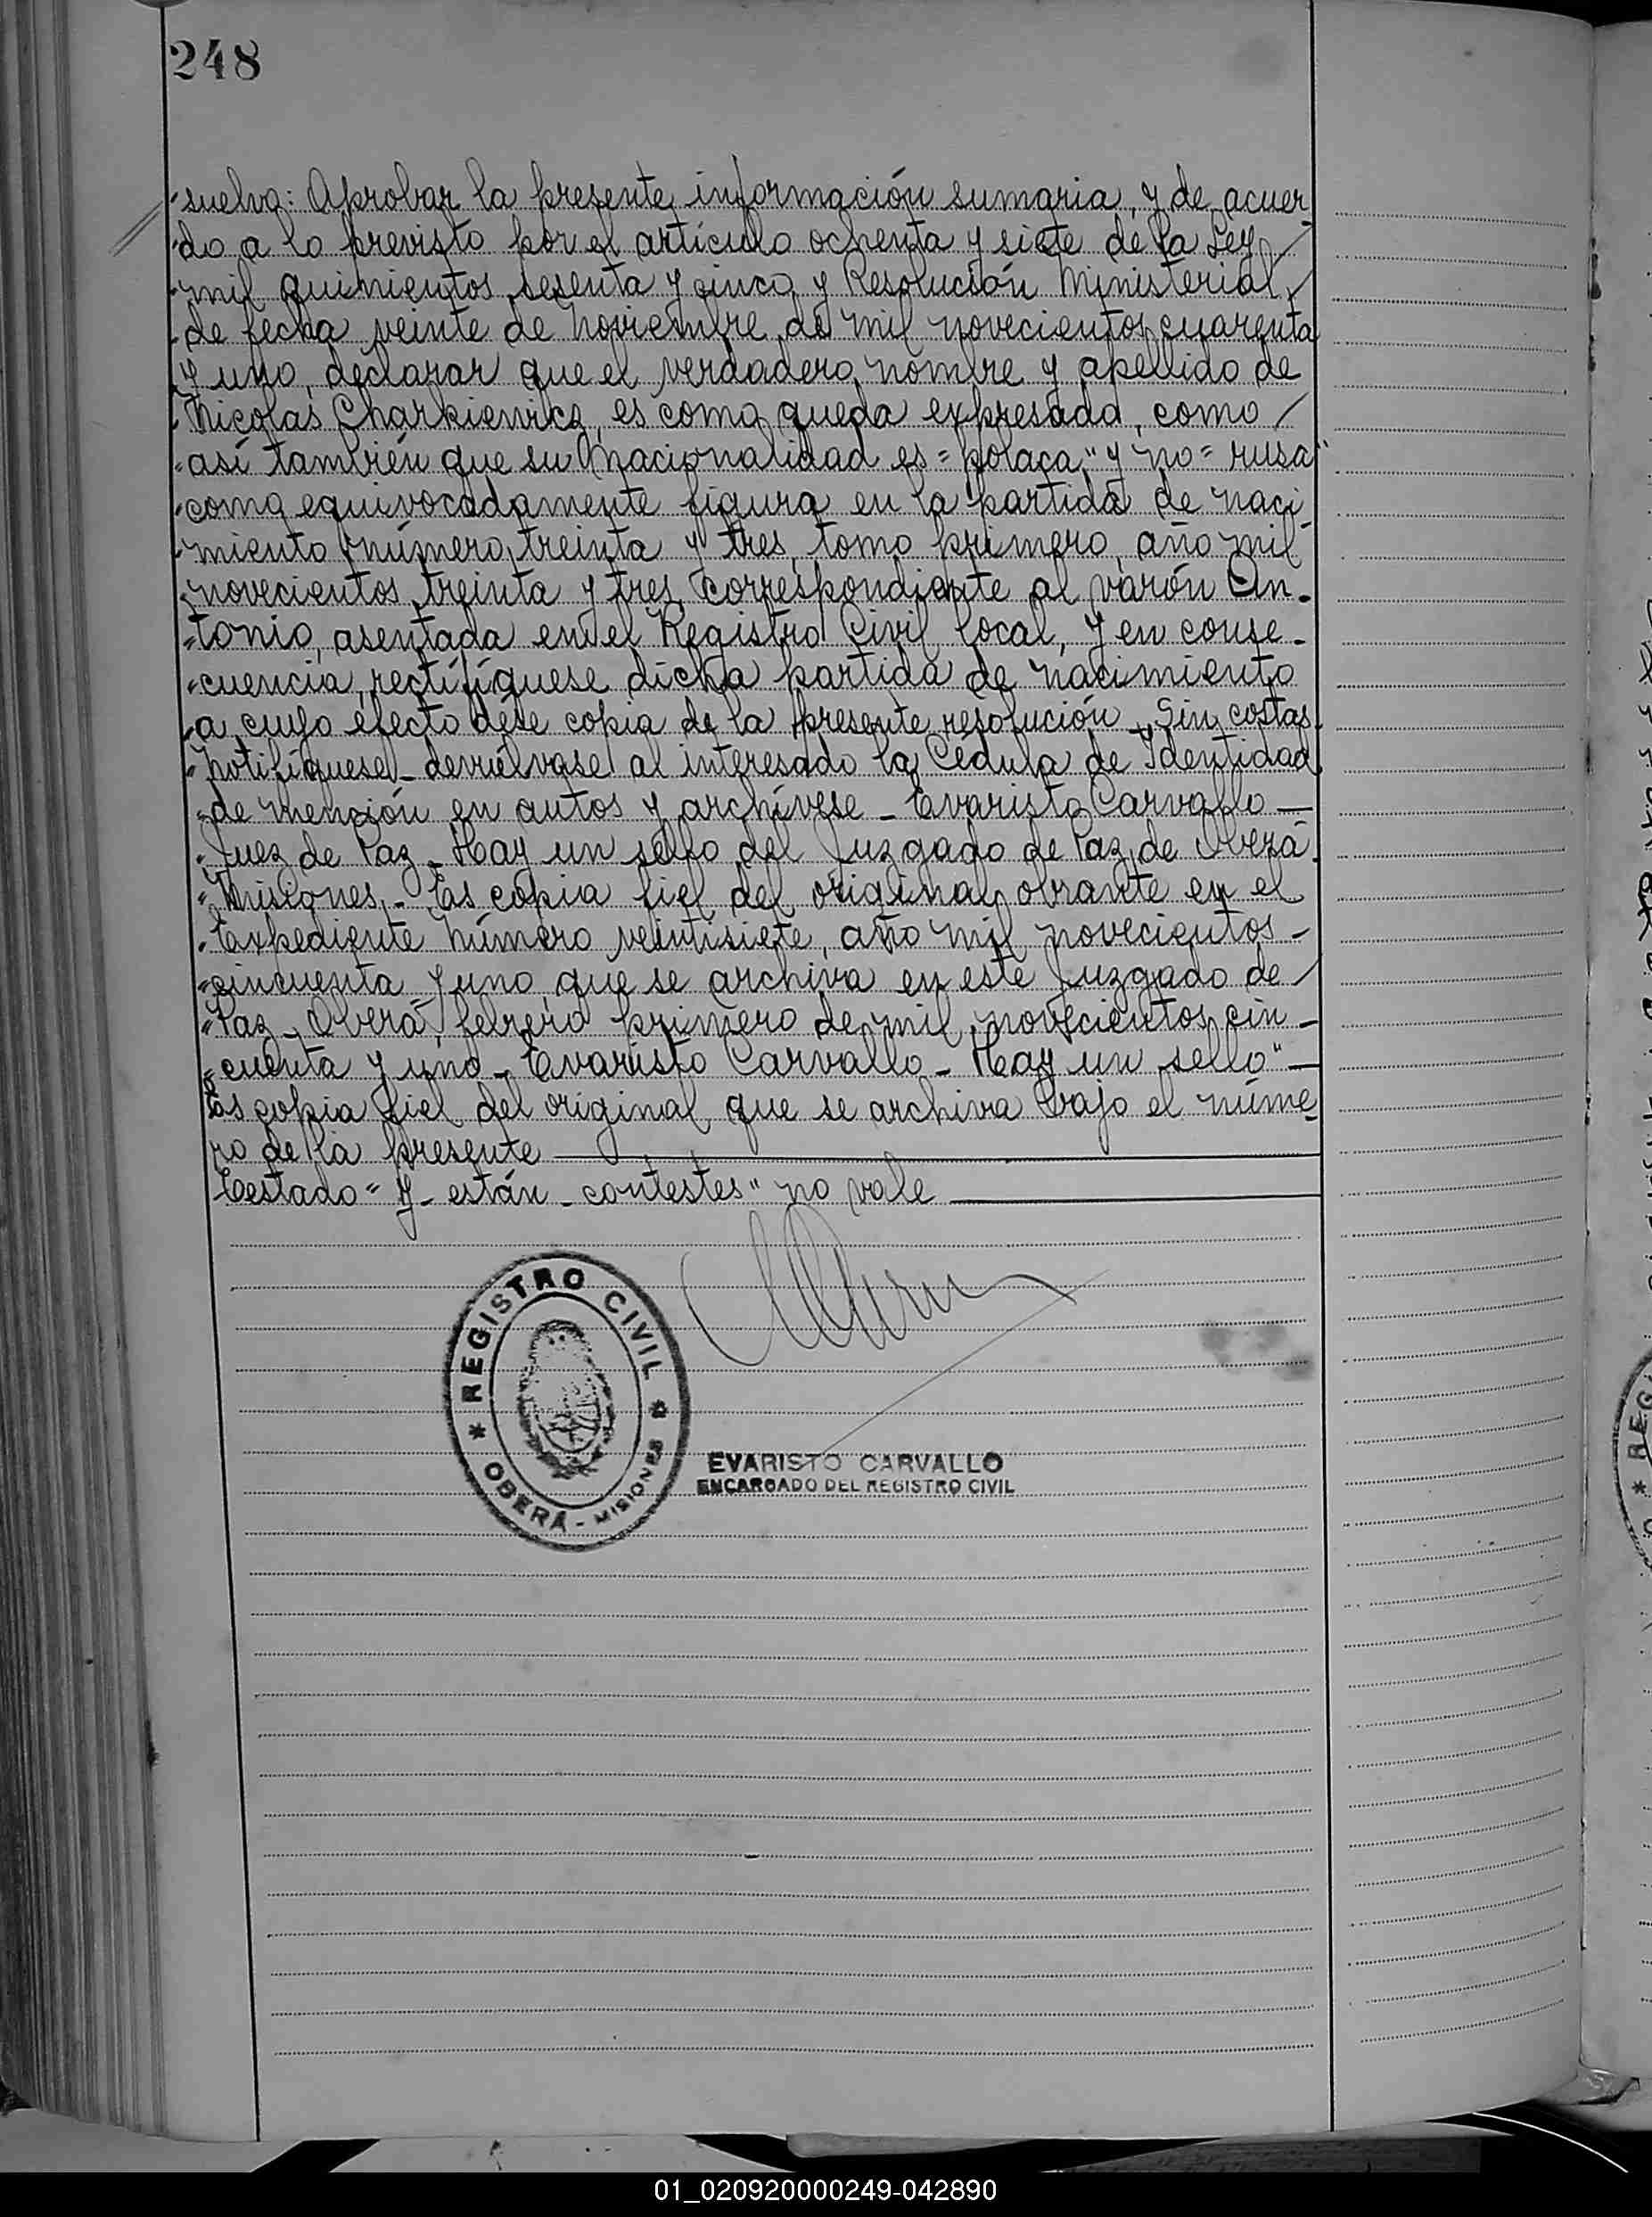 248
"suelva: Aprobar la presente información sumaria, y de acuer
"do a lo previsto por el artículo ochenta y siete de la Ley /
"mil quinientos sesenta y cinco y Resolución Ministerial /
"de fecha veinte de noviembre de mil novecientos cuarenta
"y uno, declarar que el verdadero nombre y apellido de
"Nicolas Charkiewicz, es como queda expresado, como /
"así también que su nacionalidad es = polaca" y no = rusa"
"como equivocadamente figura en la partida de naci
"miento número treinta y tres, tomo primero, año mil
"novecientos treinta y tres, correspondiente al varón An-
"tonio, asentada en el Registro Civil local, y en conse-
"cuencia, rectifíquese dicha partida de nacimiento
"a cuyo efecto dése copia de la presente resolución. Sin costas.
"Notifíquese - devuélvase al interesado la Cédula de Identidad
"de mención en autos y archívese - Evaristo Carvallo -
"Juez de Paz - Hay un sello del Juzgado de Paz de Oberá.
"Misiones - Es copia fiel del original obrante en el
"Expediente número veintisiete, año mil novecientos -
"cincuenta y uno, que se archiva en este Juzgado de /
"Paz - Oberá, febrero primero de mil novecientos cin -
"cuenta y uno - Evaristo Carvallo - Hay un sello" -
Es copia fiel del original que se archiva bajo el núme
ro de la presente
Testado = y - están - contestes" no vale
* REGISTRO CIVIL *
OBERÁ - MISIONES
EVARISTO CARVALLO
ENCARGADO DEL REGISTRO CIVIL
01_020920000249-042890